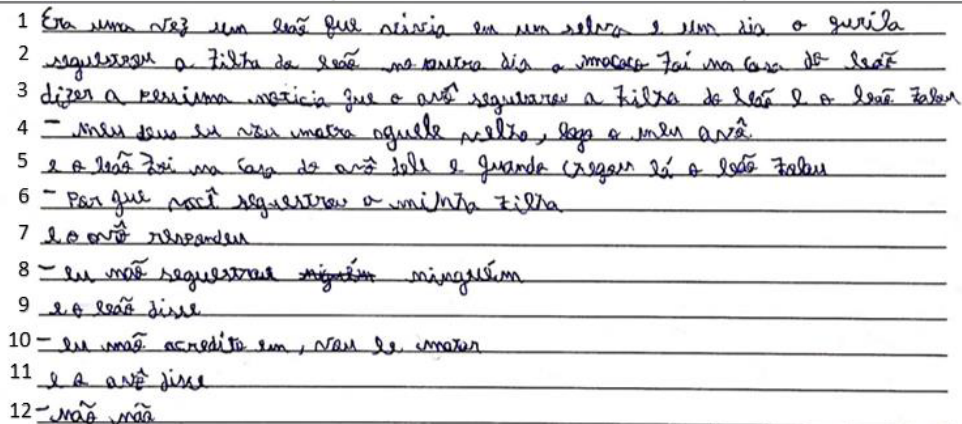 1 Era uma vez um leão que vivia em um selva e um dia o gurila
2 sequestrou a filha do leão no outro dia o macaco foi na casa do leão
3 dizer a pessima noticia que o avô seguestrou a filha do leão e o leão falou
4 - meu deus eu vou matra aguele velho, logo o meu avô
5 e o leão foi na casa do avô dele e quando chegou lá o leão falou
6 - Por que você sequestrou a minha filha
7 e o avô respondeu
8 - eu não sequestrei ninguém
9 e o leão disse
10 - eu não acredito em, vou le matar
11 e o avô disse
12 - não não